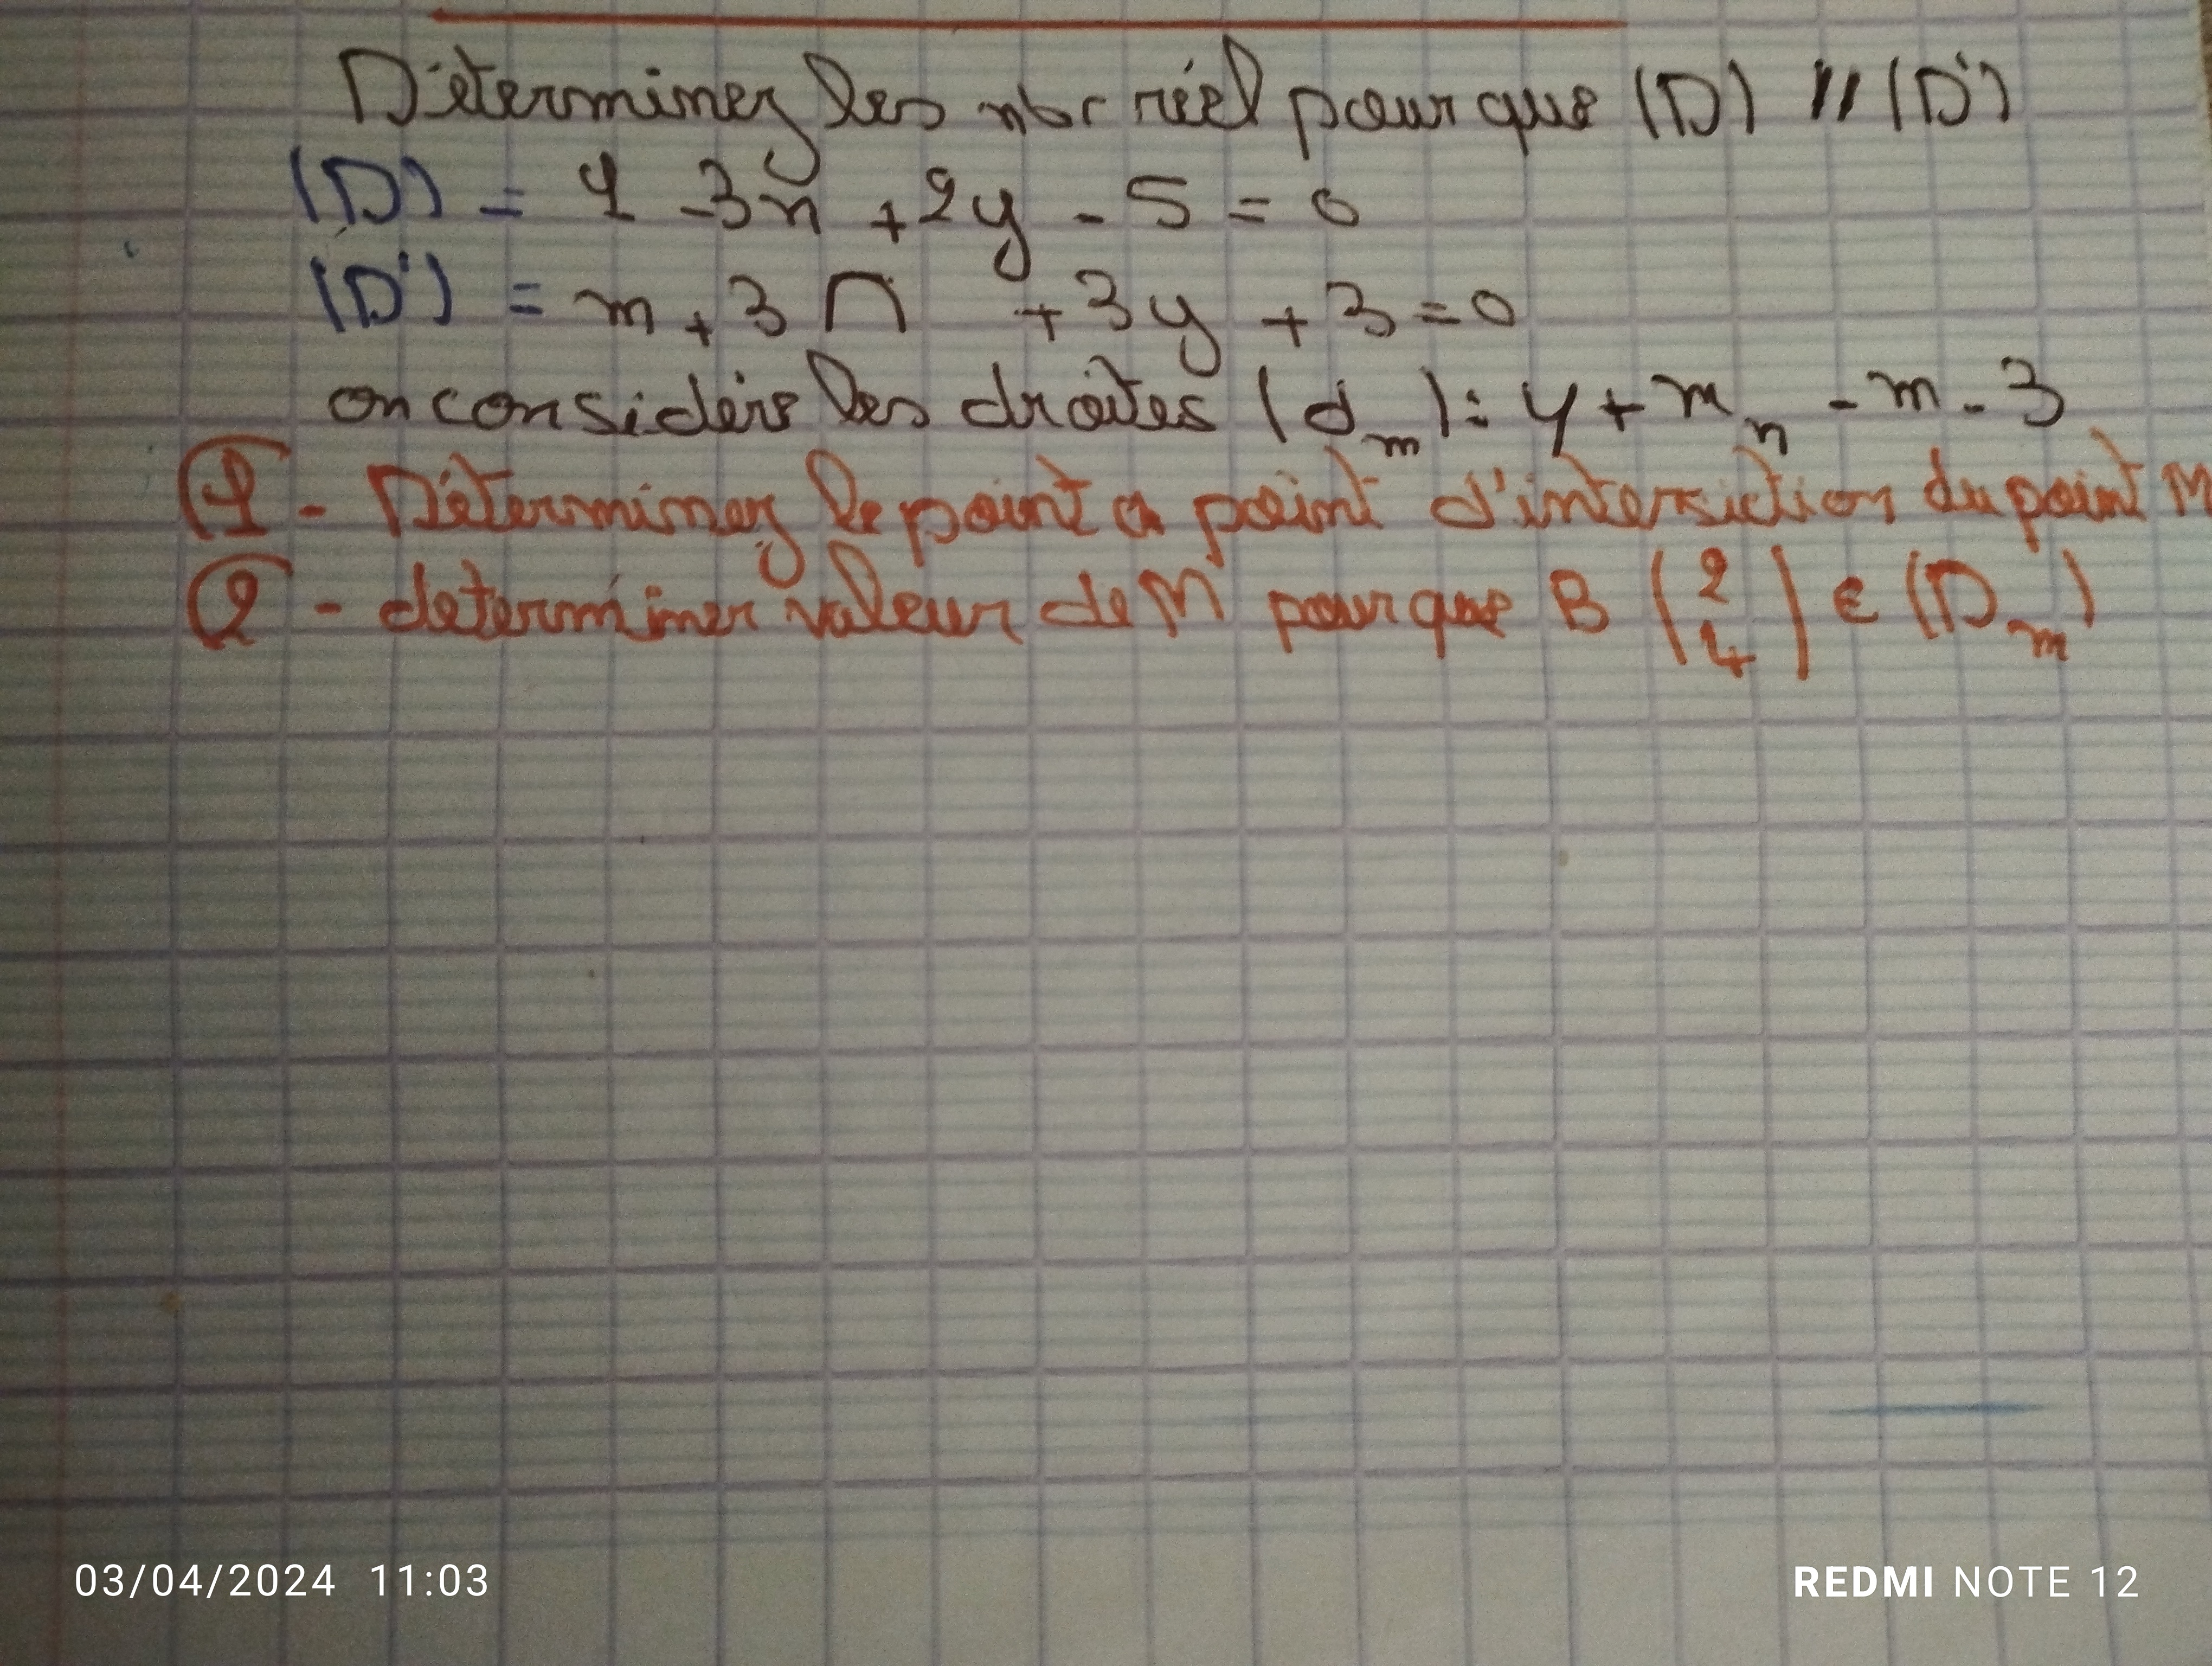 Déterminez les nbr réel pour que (D) // (D')
(D) = 1 -3x +2y - 5 = 0
(D') = m + 3 n + 3y + 3 = 0
on considère les droites (d m) : y + m x - m - 3
1 - Déterminez le point a point d'intersiction du point M
2 - determiner valeur de M pour que B (2 4) ∈ (D m)
03/04/2024 11:03
REDMI NOTE 12